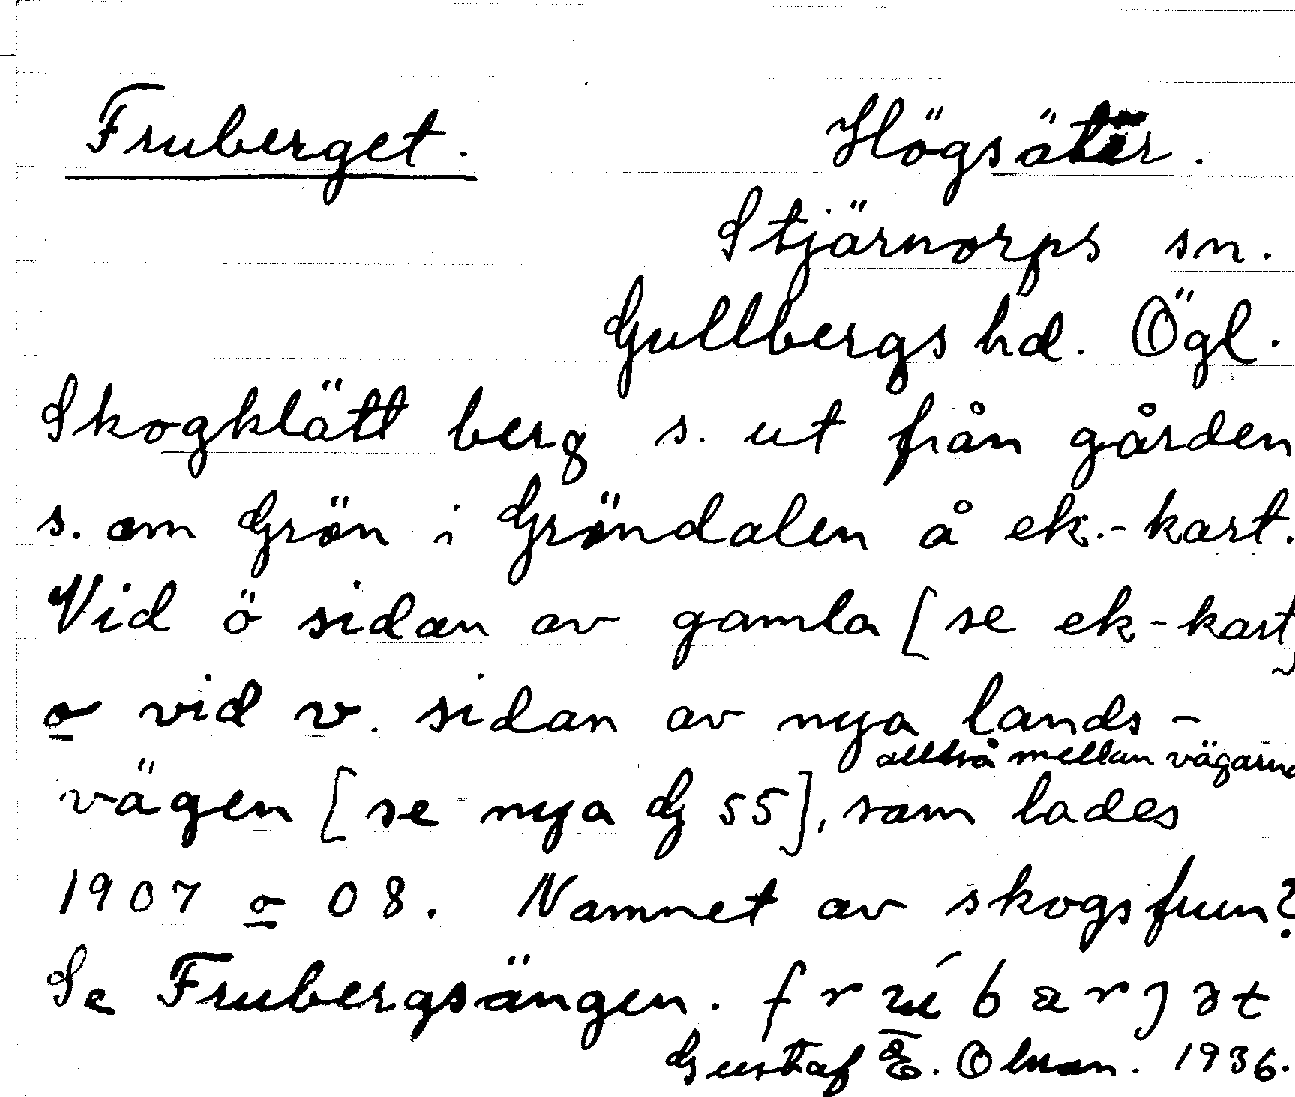 Fruberget. Högsäter.
Stjärnorps sn.
Gullbergs hd. Ögl.
Skogklätt berg s. ut från gården
s. om Grön i Gröndalen å ek.-kart.
Vid ö sidan av gamla [se ek-kart]
o vid v. sidan av nya lands-
alltså mellan vägarna
vägen [se nya G 55], som lades
1907 o 08. Namnet av skogsfrun?
Se Frubergsängen.
Gustaf E. Olsson. 1936.